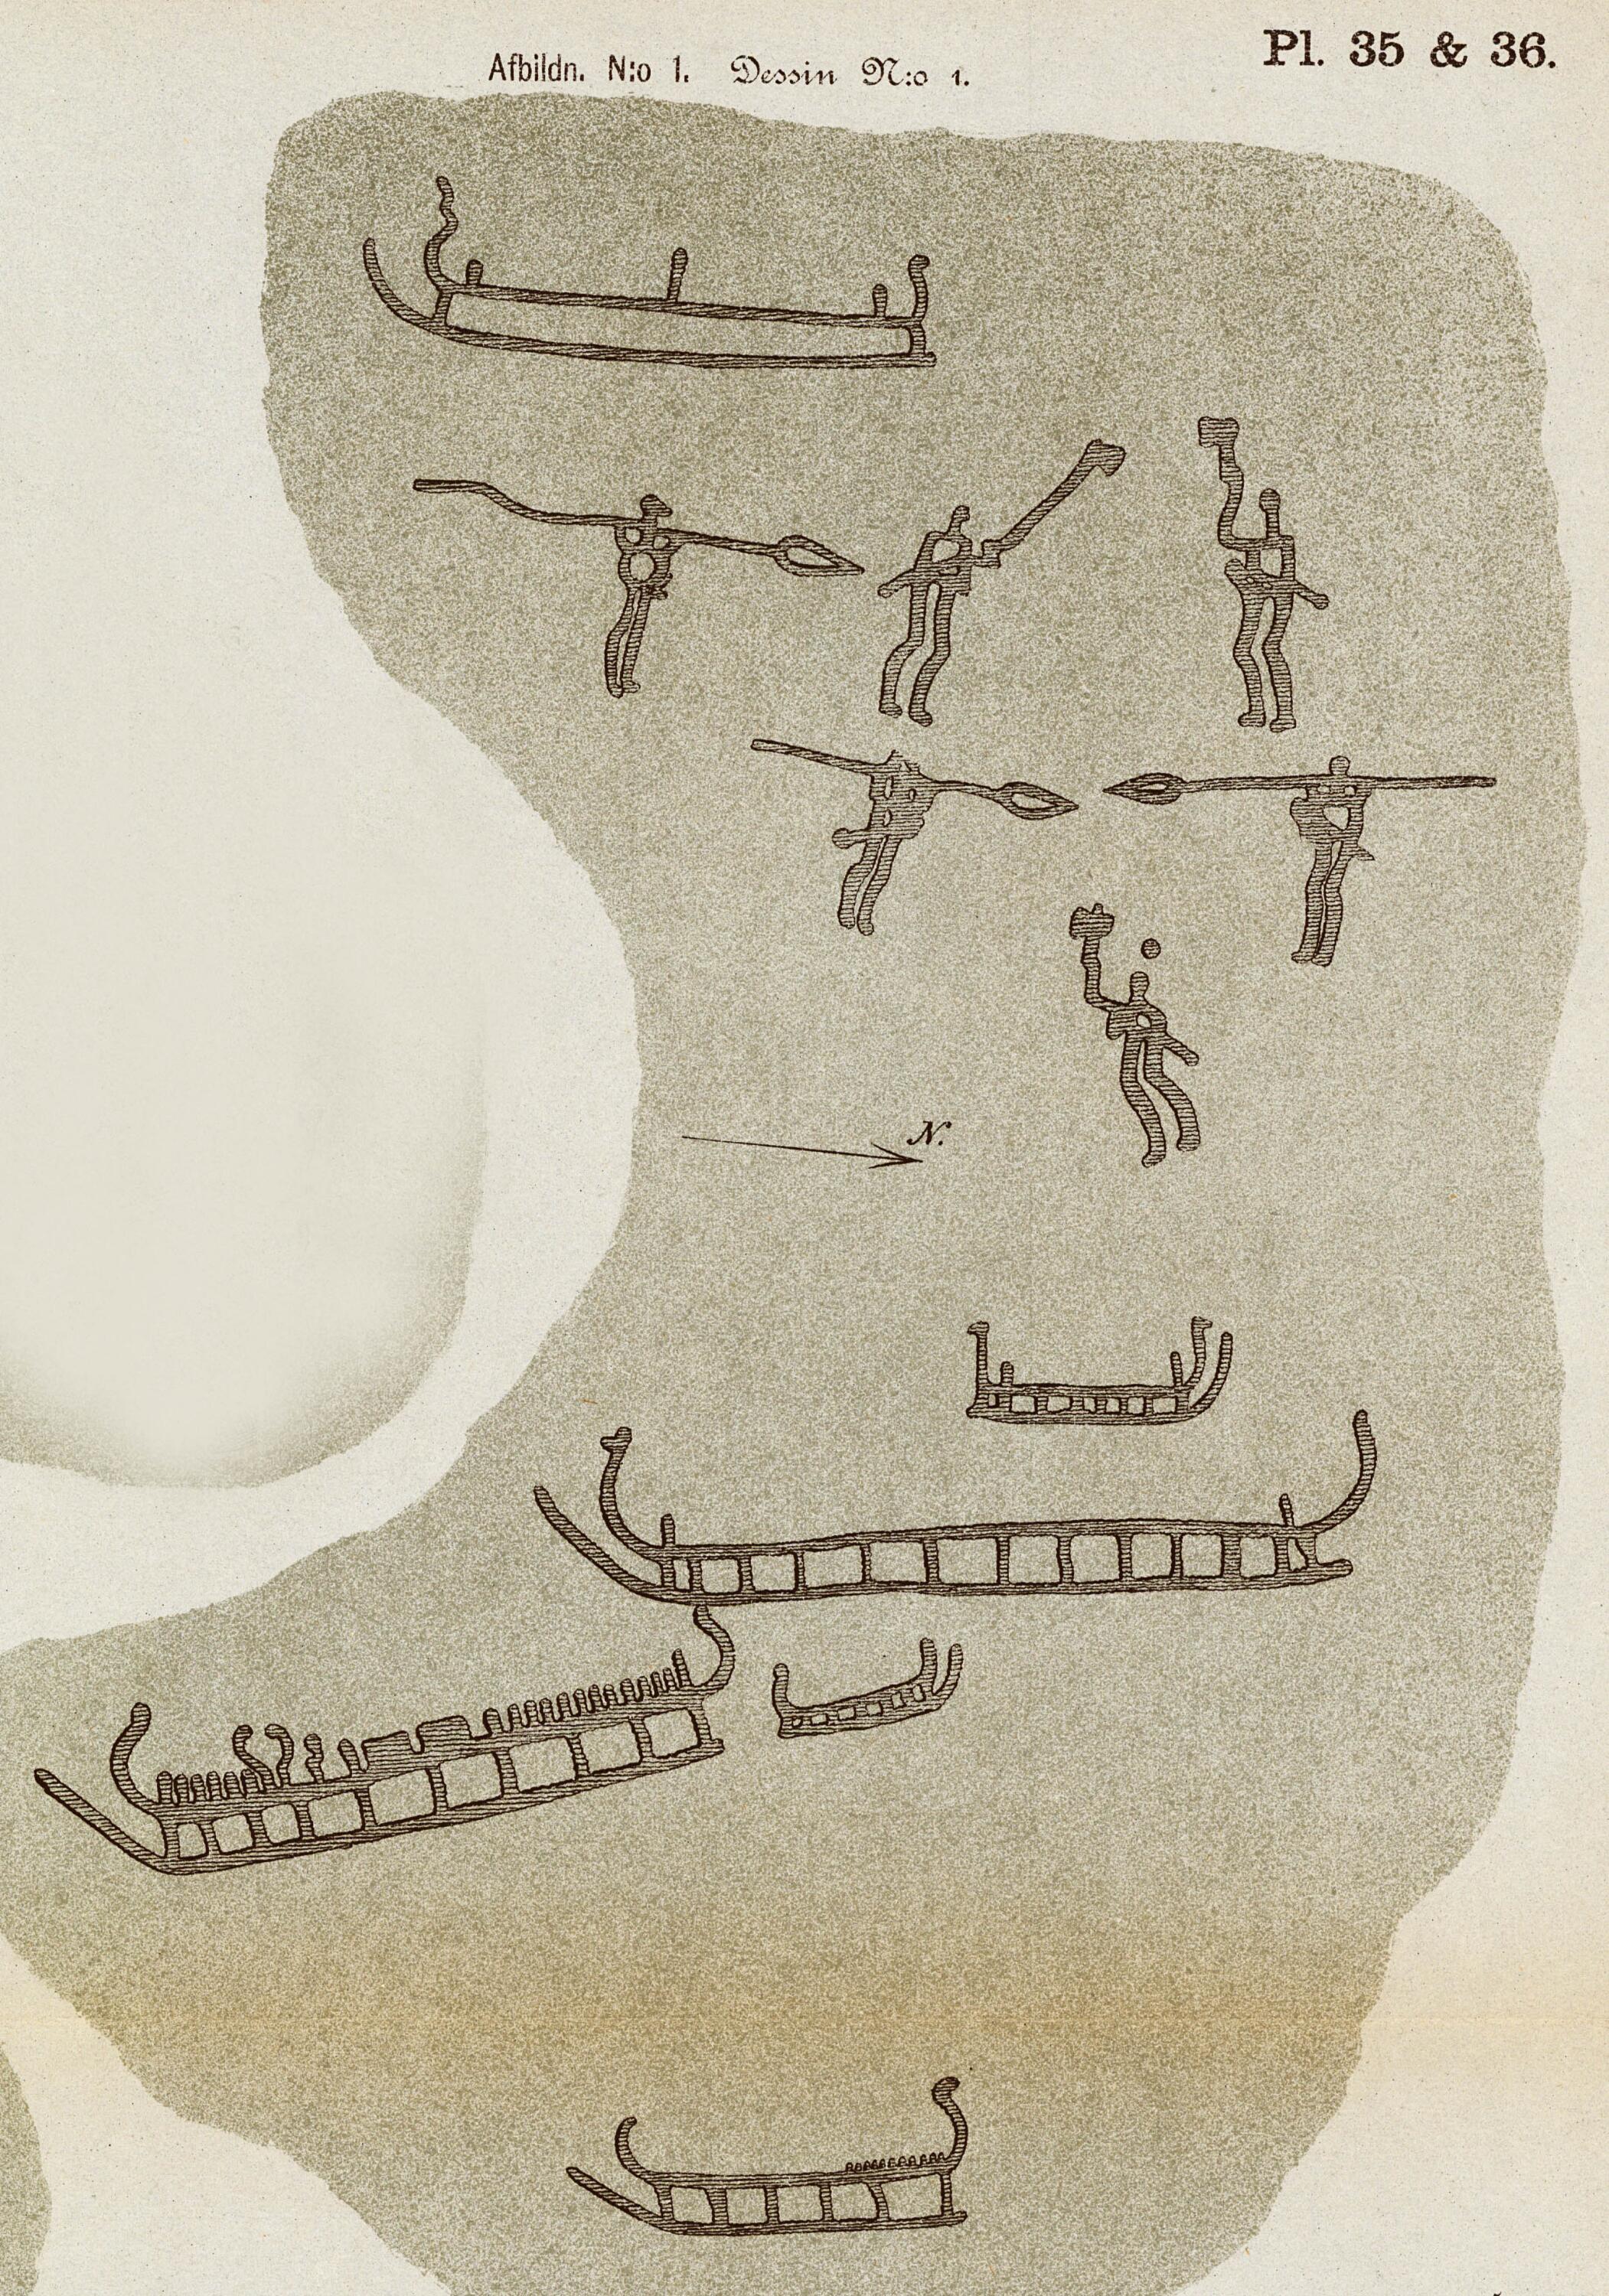 Pl. 35 & 36.
Afbildn. N:o 1. Dessin N:o 1.
N.